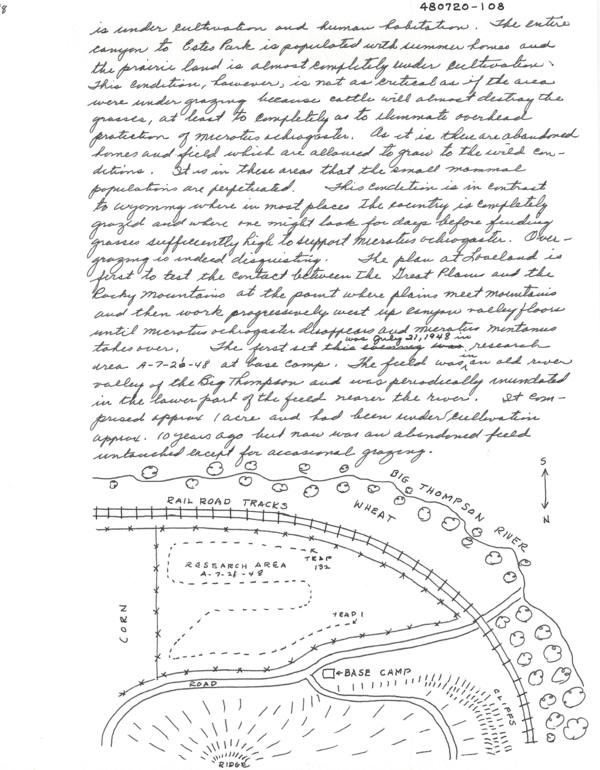 8
480720-108
is under cultivation and human habitation. The entire
canyon to Estes Park is populated with summer homes and
the prairie land is almost completely under cultivation.
This condition, however, is not as critical as if the area
were under grazing because cattle will almost destroy the
grasses, at least to completely as to eliminate overhead
protection of microtus ochrogaster. As it is there are abandoned
homes and field which are allowed to grow to the wild con-
ditions. It is in these areas that the small mammal
populations are perpetuated. This condition is in contrast
to Wyoming where in most places the country is completely
grazed and where one might look for days before finding
grasses sufficiently high to support microtus ochrogaster. Over-
grazing is indeed disgusting. The plan at Loveland is
first to test the contact between the Great Plains and the
Rocky Mountains at the point where plains meet mountains
and then work progressively west up canyon valley floors
until microtus ochrogaster disappears and microtus montanus
takes over. The first set this evening was, was July 21, 1948 in research
area A-7-26-48 at base camp. The field was in an old river
valley of the Big Thompson and was periodically inundated
in the lower part of the field nearer the river. It com-
prised approx 1 acre and had been under cultivation
approx. 10 years ago but now was an abandoned field
untouched except for accasional grazing.
S
N
BIG THOMPSON RIVER
RAIL ROAD TRACKS
WHEAT
TRAP
132
RESEARCH AREA
A-7-21-48
TRAP 1
CORN
BASE CAMP
ROAD
CLIFFS
RIDGE